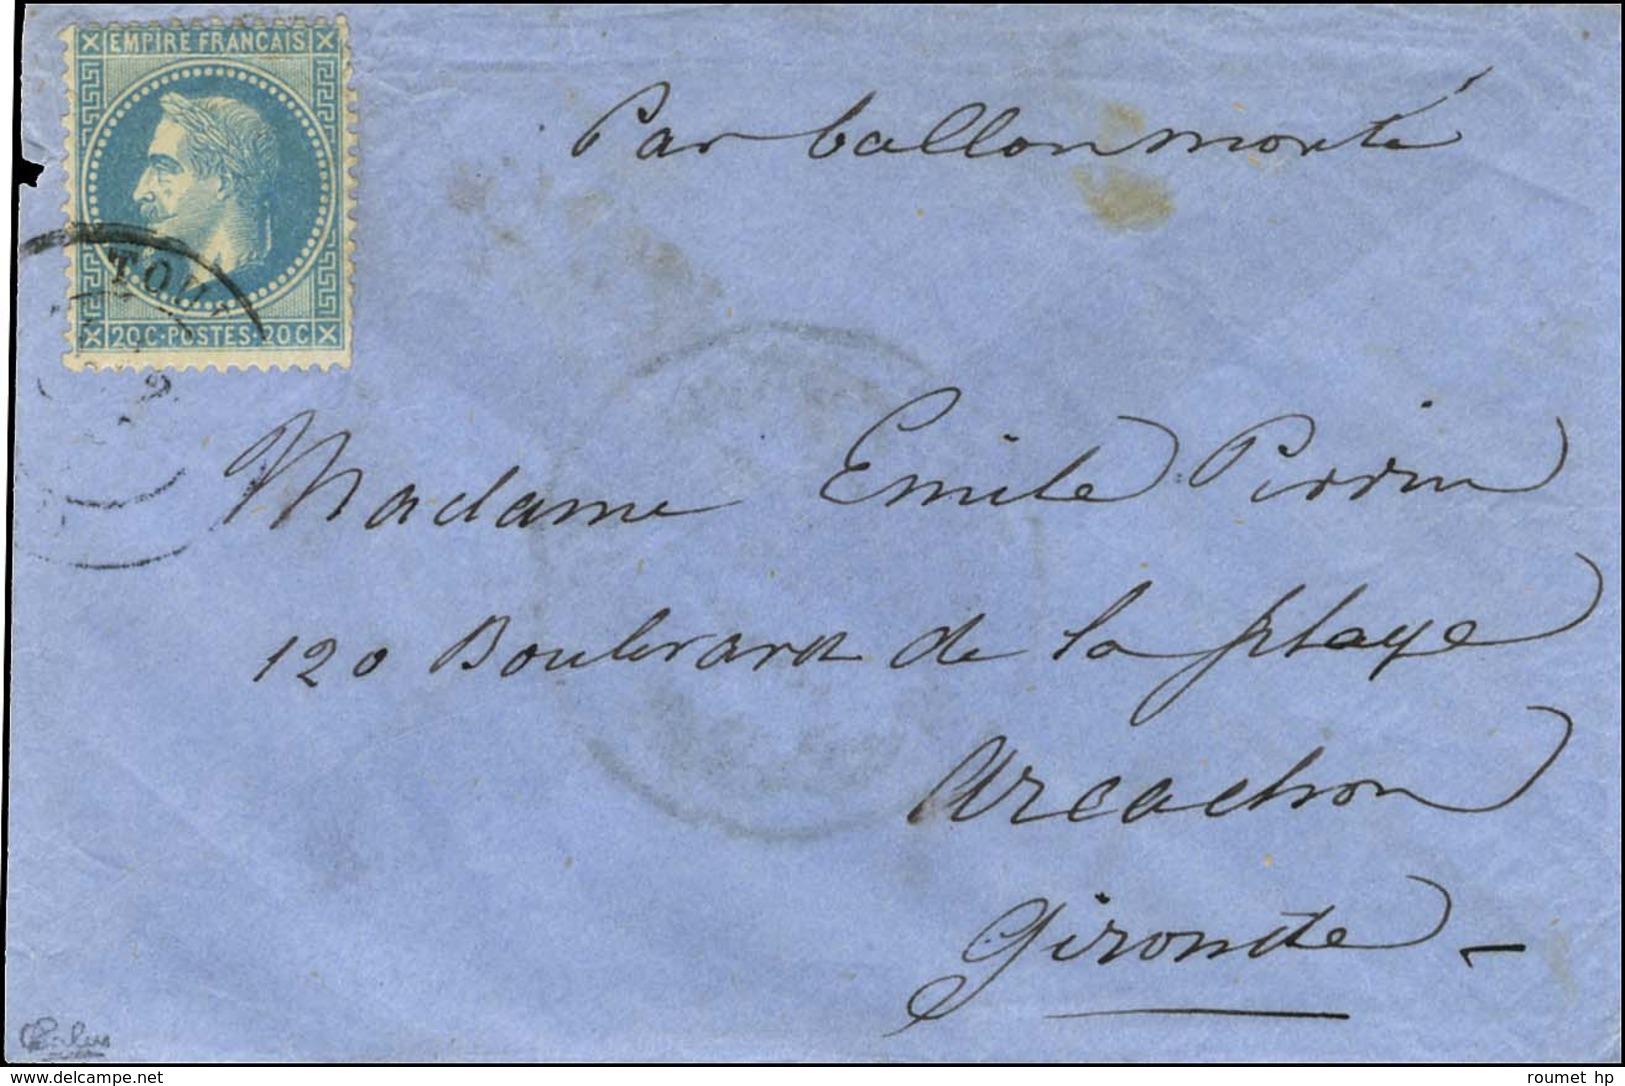 EMPIRE FRANCAIS
Par ballon monté
TOU
20C·POSTES·20C
2
Madame Emile Perrin
120 Boulevard de la plage
Arcachon
Gironde
www.delcampe.net
roumet hp